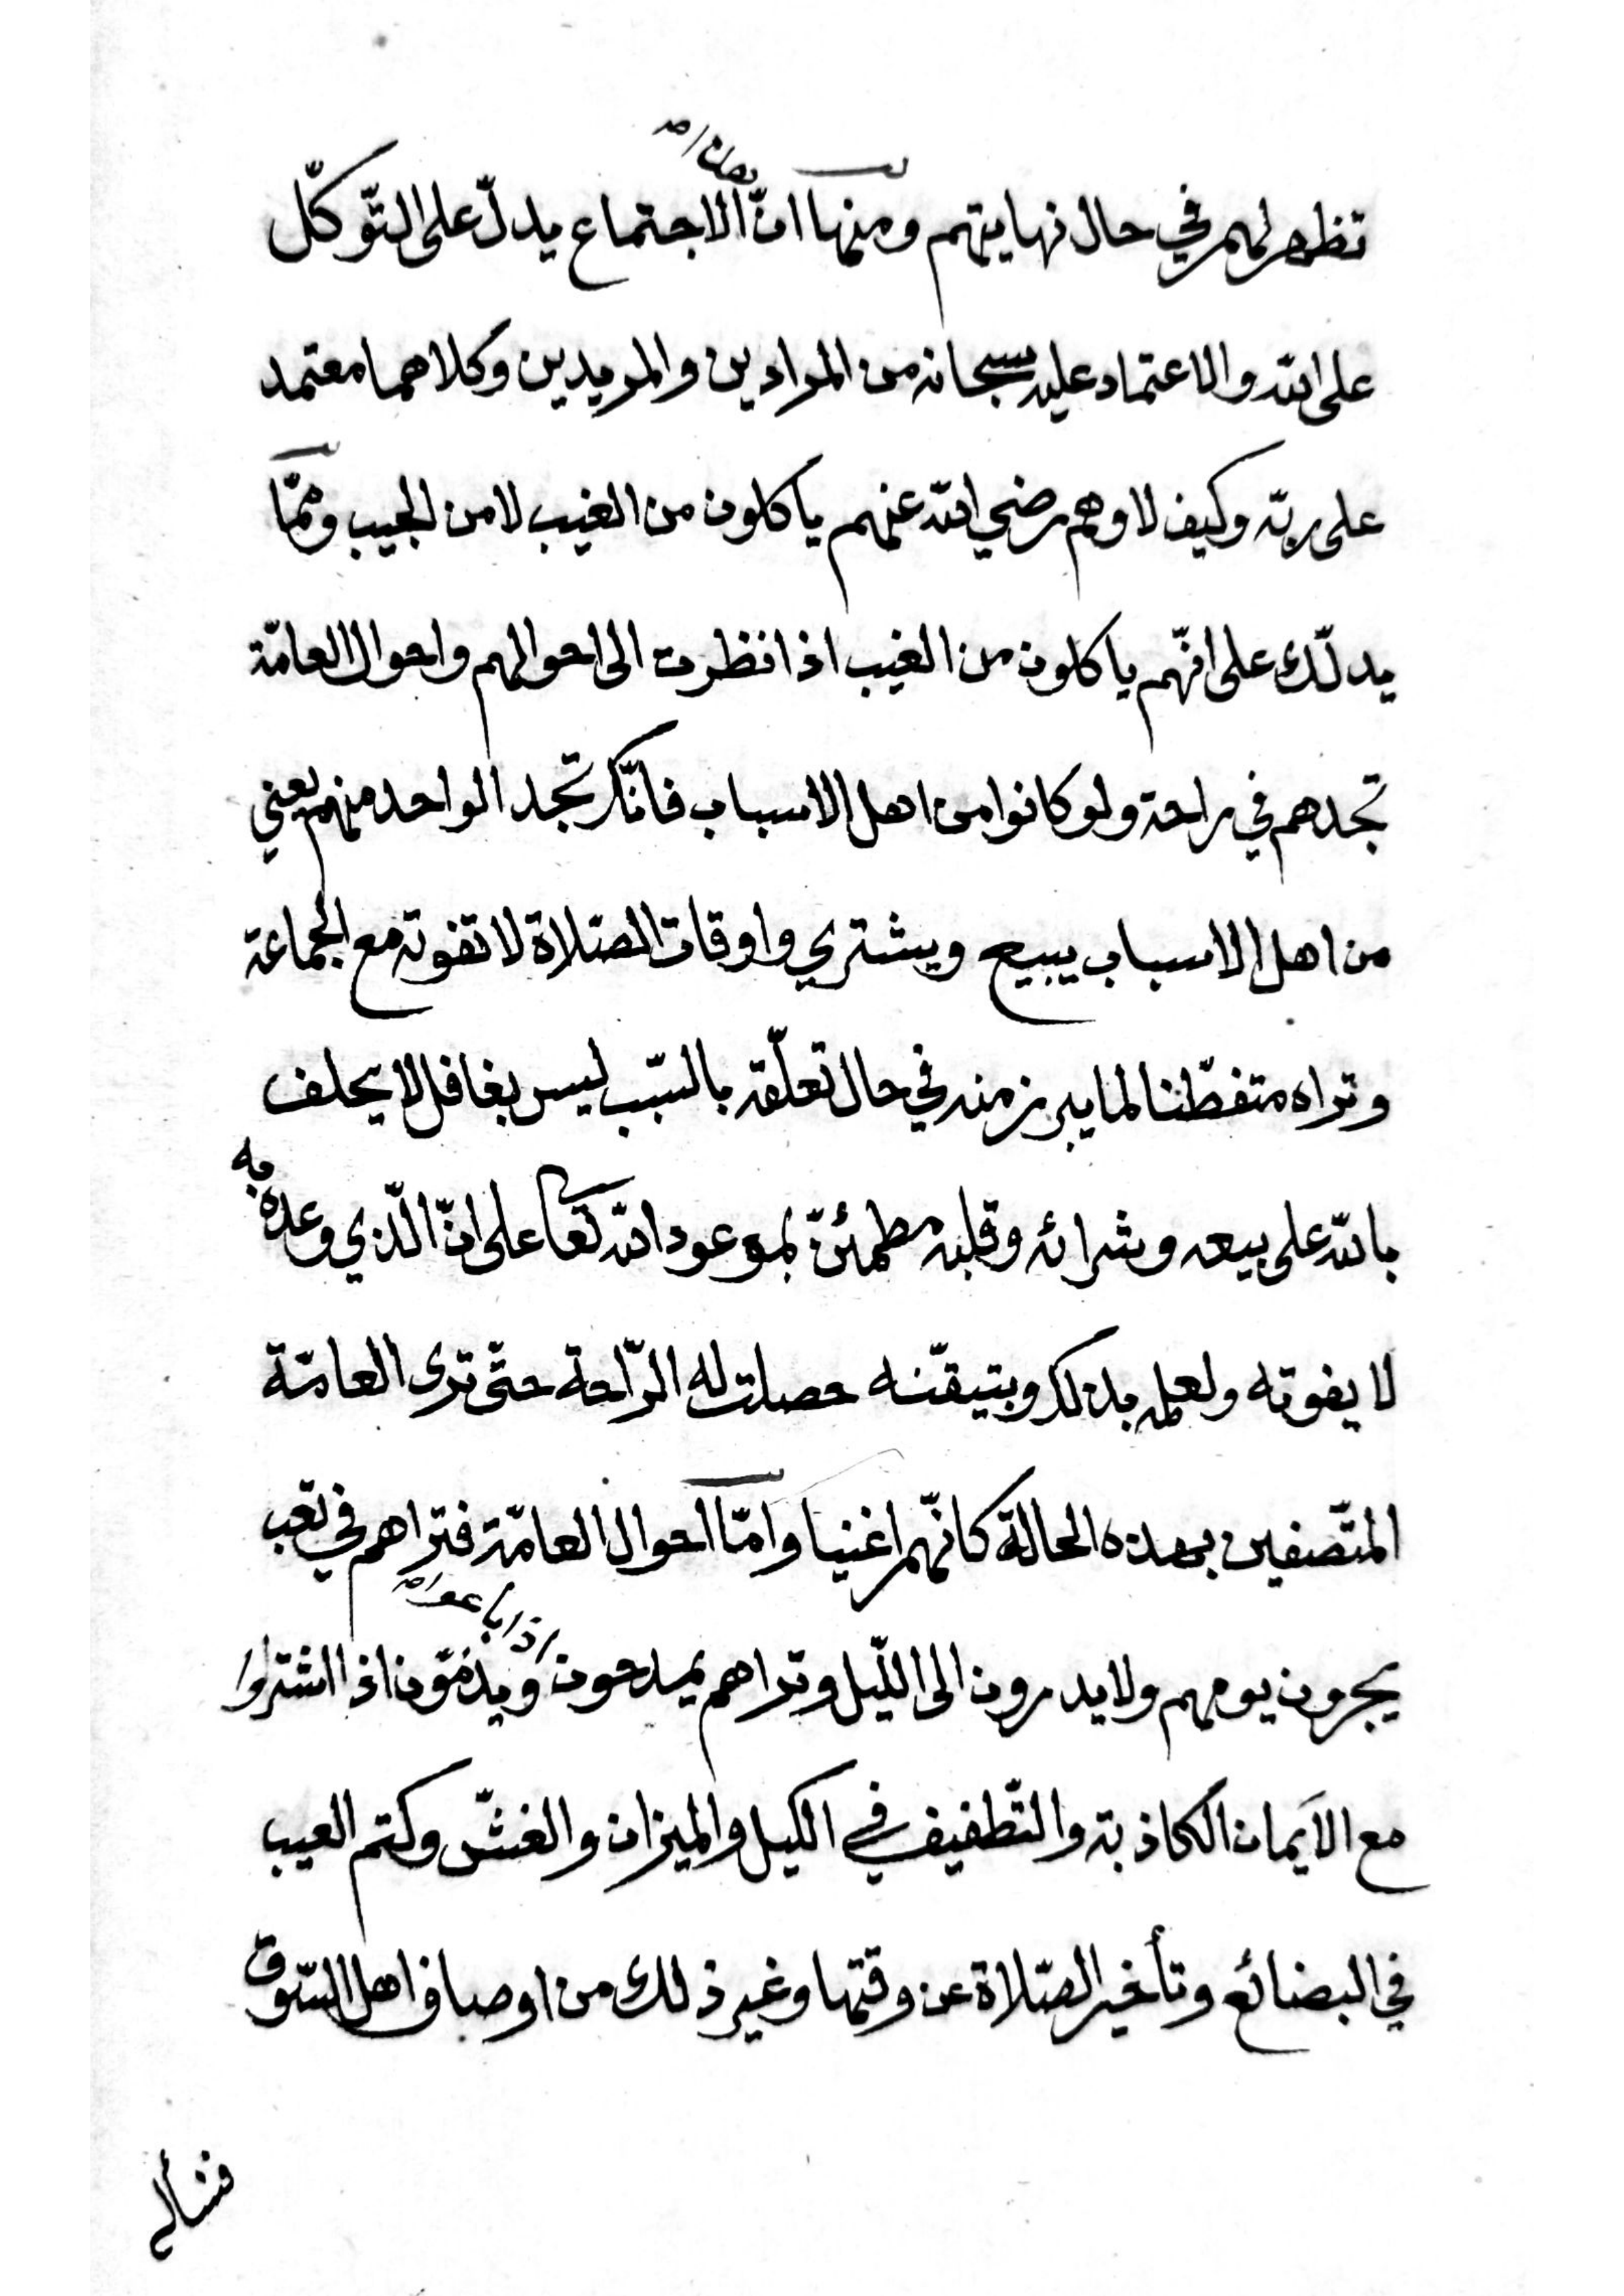 تظهر لهم في حال نهايتهم ومنها انّ الاجتماع يدلّ على التّوكّل
على الله والاعتماد عليه سبحانه من المرادين والمريدين وكلاهما معتمد
على ربّه وكيف لا وهم رضي الله عنهم ياكلون من الغيب لا من الجيب وممّا
يدلّك على انّهم ياكلون من الغيب اذا نظرت الى احوالهم واحوال العامّة
تجدهم في راحة ولو كانوا من اهل الاسباب فانّك تجد الواحد منهم يعني
من اهل الاسباب يبيع ويشتري واوقات الصّلاة لا تفوته مع الجماعة
وتراه متفطّنا لما يبرز منه في حال تعلّقه بالسّبب ليس بغافل لا يحلف
بالله على بيعه وشرائه وقلبه مطمئنّ بموعود الله تعا على انّ الّذي وعده به
لا يفوته ولعلمه بذلك وبتيقّنه حصلت له الرّاحة حتّى ترى العامّة
المتّصفين بهذه الحالة كانّهم اغنيا وامّا احوال العامّة فتراهم في تعب
يجرون يومهم ولا يدرون الى اللّيل وتراهم يمدحون ويذمّون اذا اشتروا
مع الاَيمان الكاذبة والتّطفيف في الكيل والميزان والغشّ وكتم العيب
في البضائع وتأخير الصّلاة عن وقتها وغير ذلك من اوصاف اهل السّوق